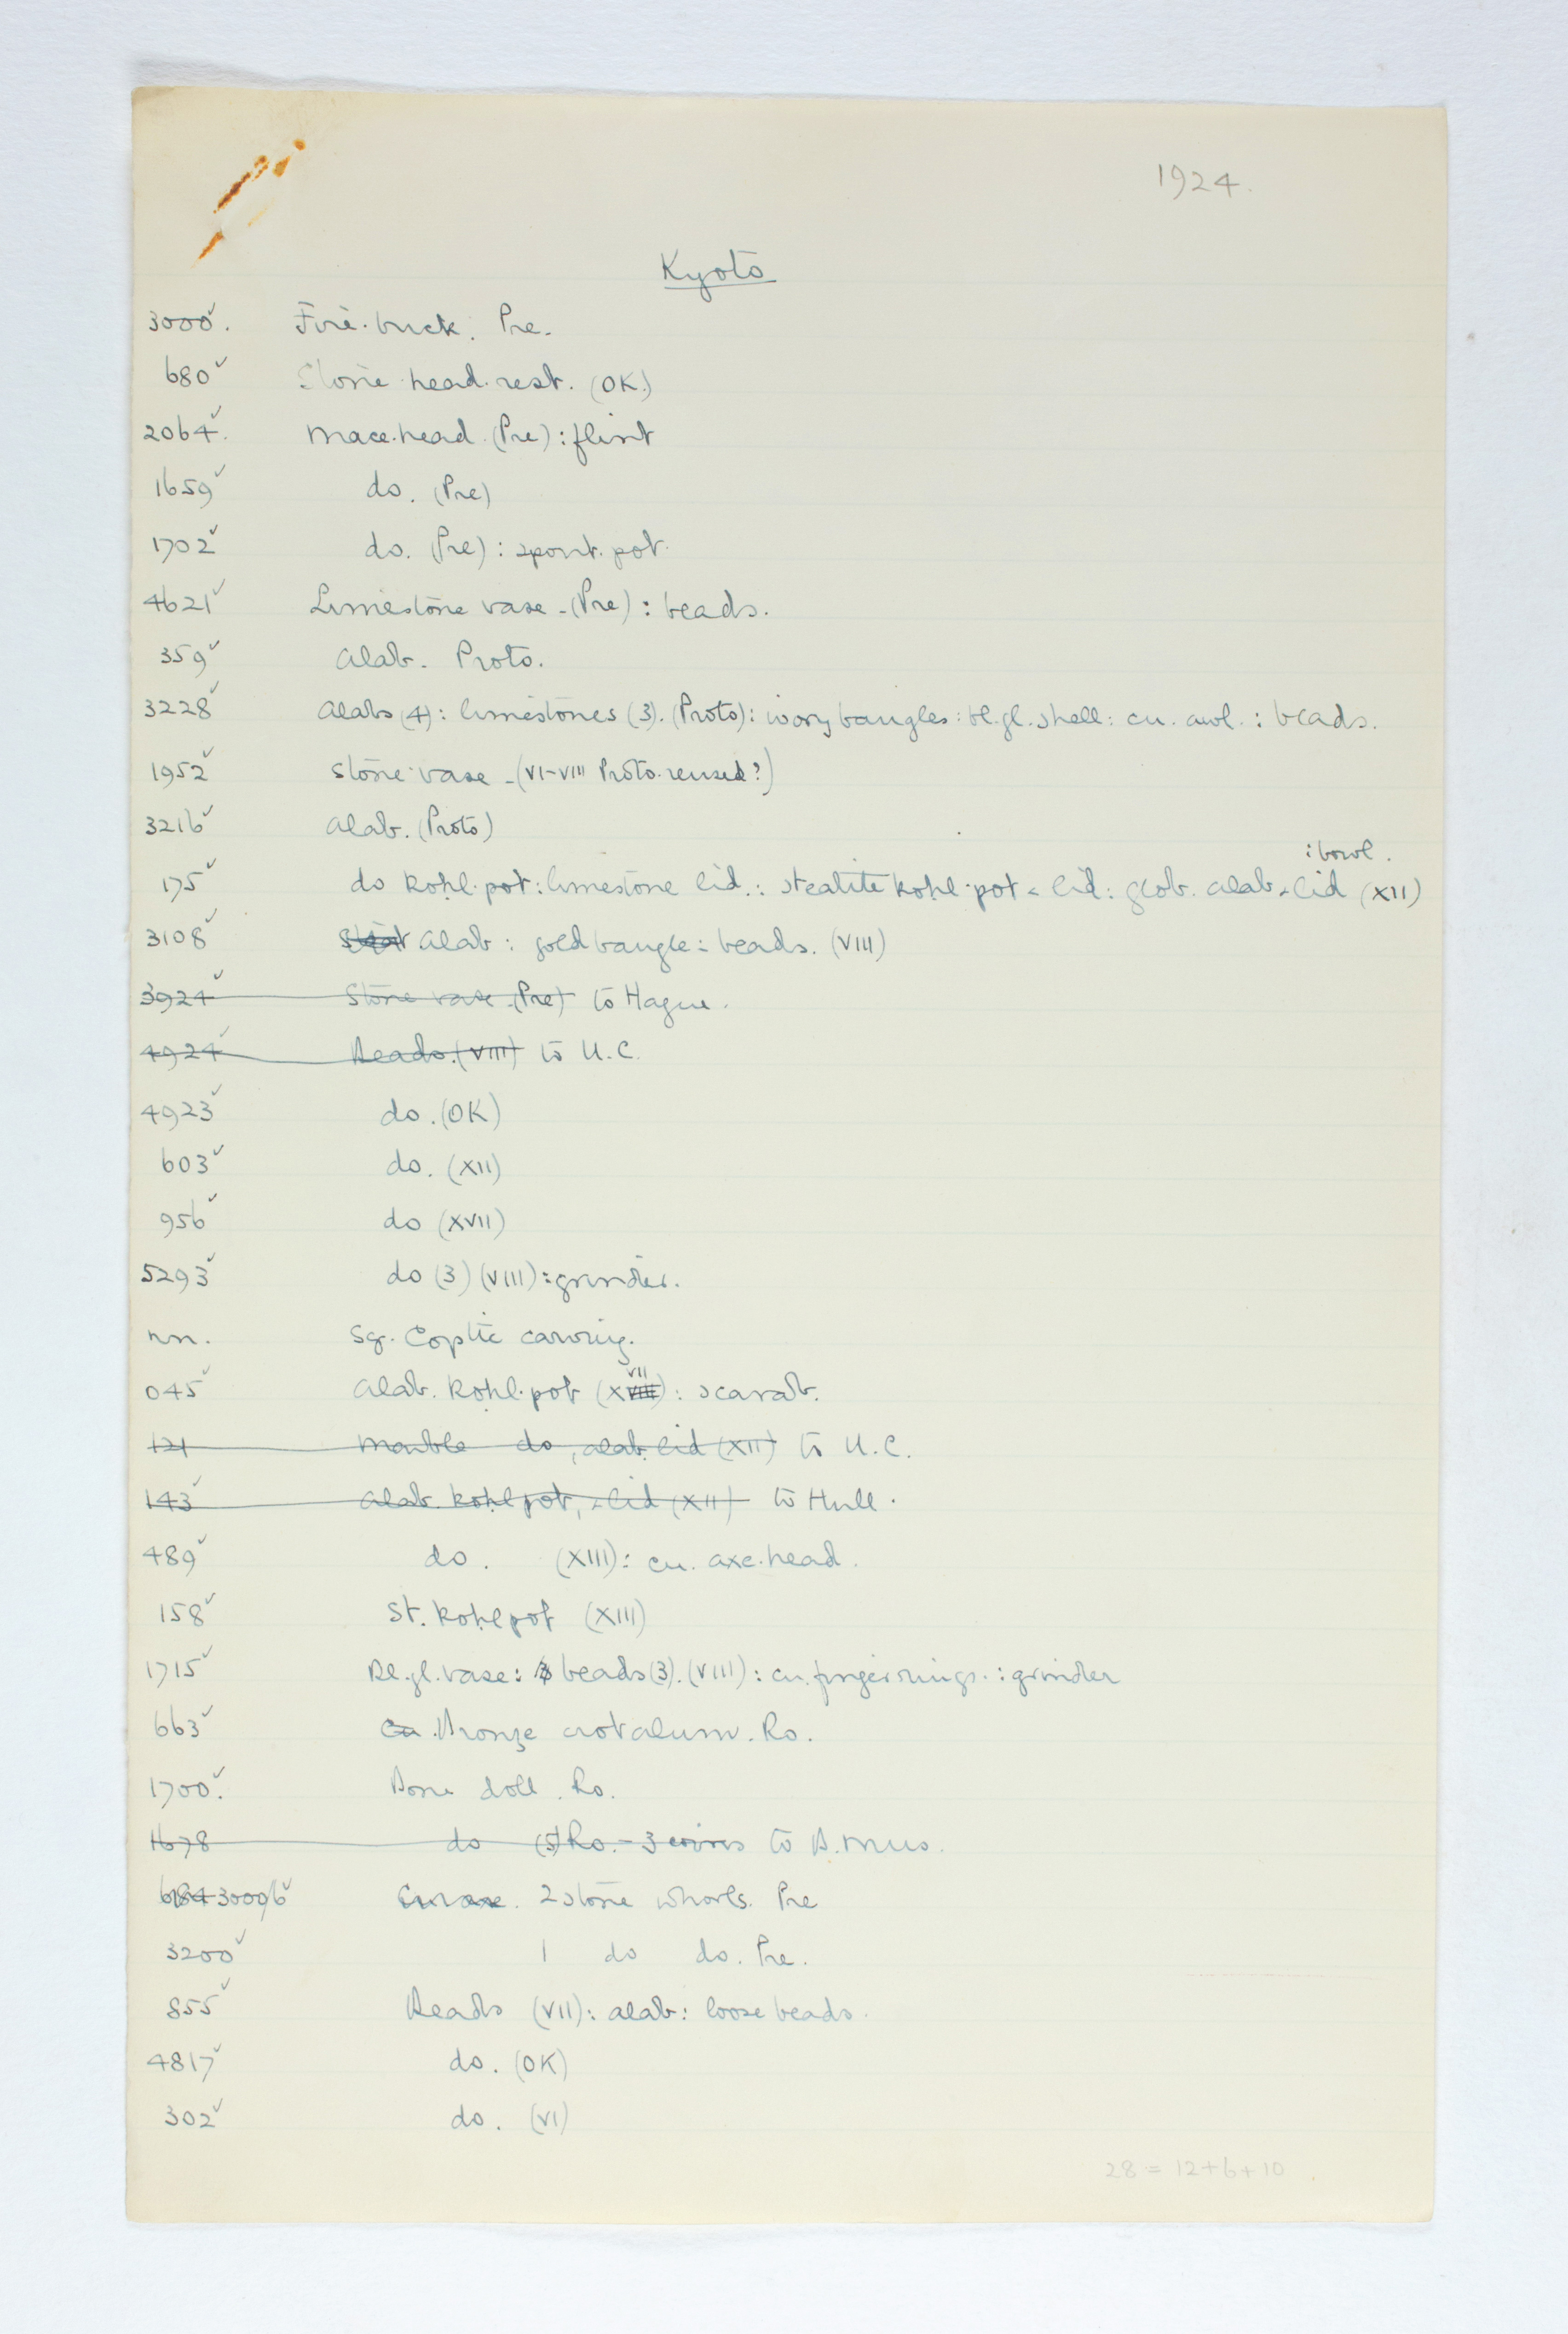 1924.
Kyoto
3000. Fire-brick. Pre.
680 Stone head-rest. (OK.)
2064. Mace-head. (Pre): flint
1659 do. (Pre)
1702 do. (Pre): spout-pot.
4621 Limestone vase - (Pre): beads.
359 Alab. Proto.
3228 Alabs (4): limestones (3). (Proto): ivory bangles: bl. gl. shell: cu. awl.: beads.
1952 Stone vase - (VI-VIII Proto. reused?)
3216 Alab. (Proto)
: bowl.
175 do kohl-pot: limestone lid.: steatite kohl-pot & lid: glob. alab & lid (XII)
3108 Alab: gold bangle: beads. (VIII)
3924 Stone vase (Pre) to Hague.
4924 Beads. (VIII) to U.C.
4923 do. (OK)
603 do. (XII)
956 do (XVII)
5293 do (3) (VIII): grinder.
nn. Sq. Coptic carving.
045 Alab. kohl-pot (XVII): scarab.
121 Marble do, alab. lid (XII) to U.C.
143 Alab. kohl pot, & lid (XII) to Hull.
489 do. (XIII): cu. axe-head.
158 St. kohl pot (XIII)
1715 Bl. gl. vase: beads (3). (VIII): cu. finger rings.: grinder
663 Cu. Bronze crotalum. Ro.
1700. Bone doll. Ro.
1678 do (5) Ro. - 3 coins to B. Mus.
684 30006 2 stone whorls. Pre
3200 1 do do. Pre.
855 Beads (VII): alab: loose beads.
4817 do. (OK)
302 do. (VI)
28 = 12+6+10